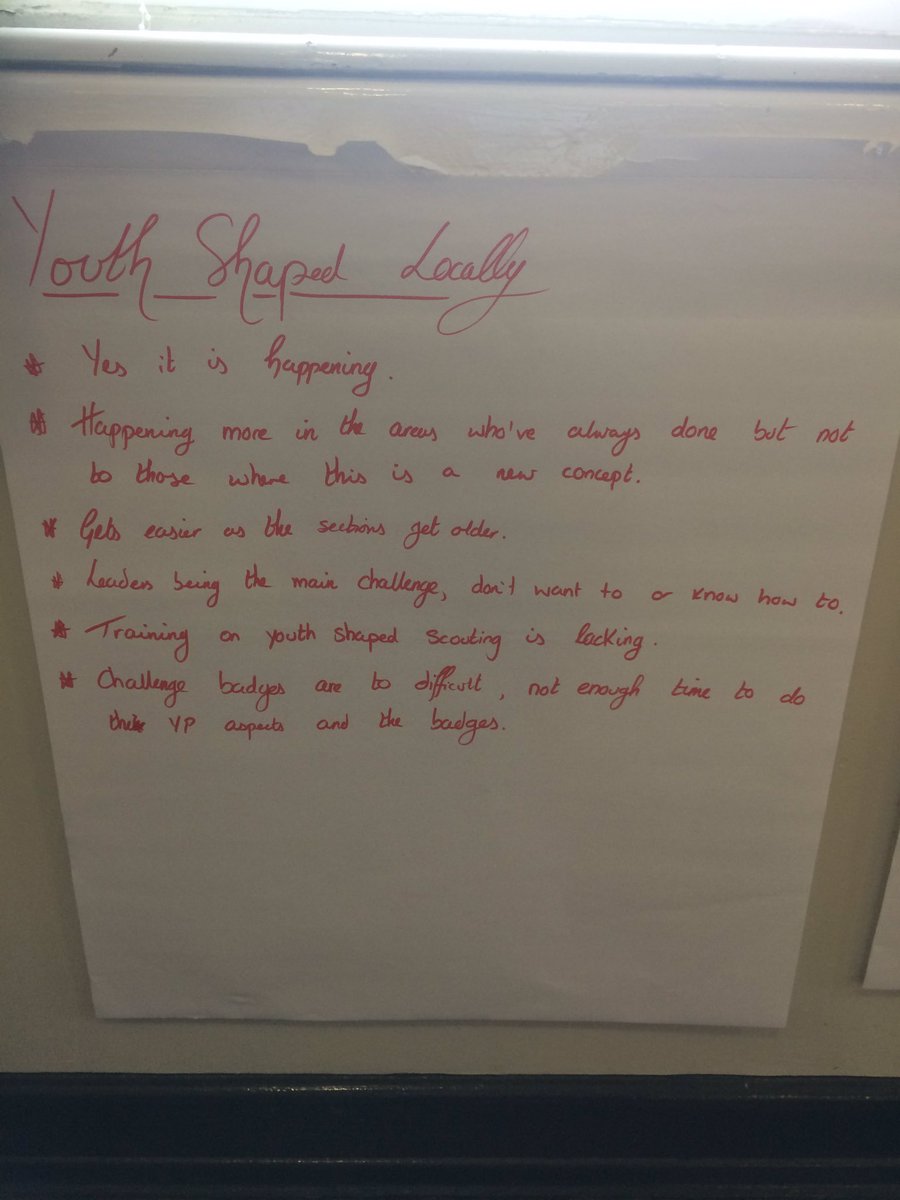 Youth Shaped Locally
* Yes it is happening.
* Happening more in the areas who've always done but not
to those where this is a new concept.
* Gets easier as the sections get older.
* Leaders being the main challenge, don't want to or know how to.
* Training on youth shaped scouting is lacking.
* Challenge badges are to difficult, not enough time to do
the YP aspects and the badges.